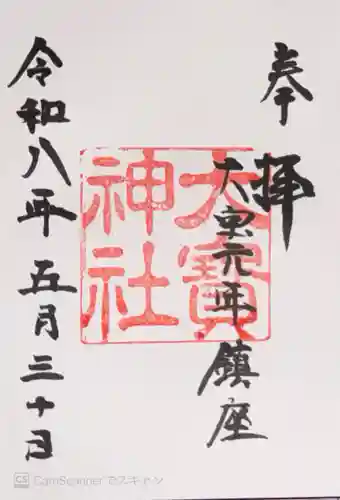 奉拝
大宝元年鎮座
大寳神社
令和八年五月三十日
CS CamScanner でスキャン